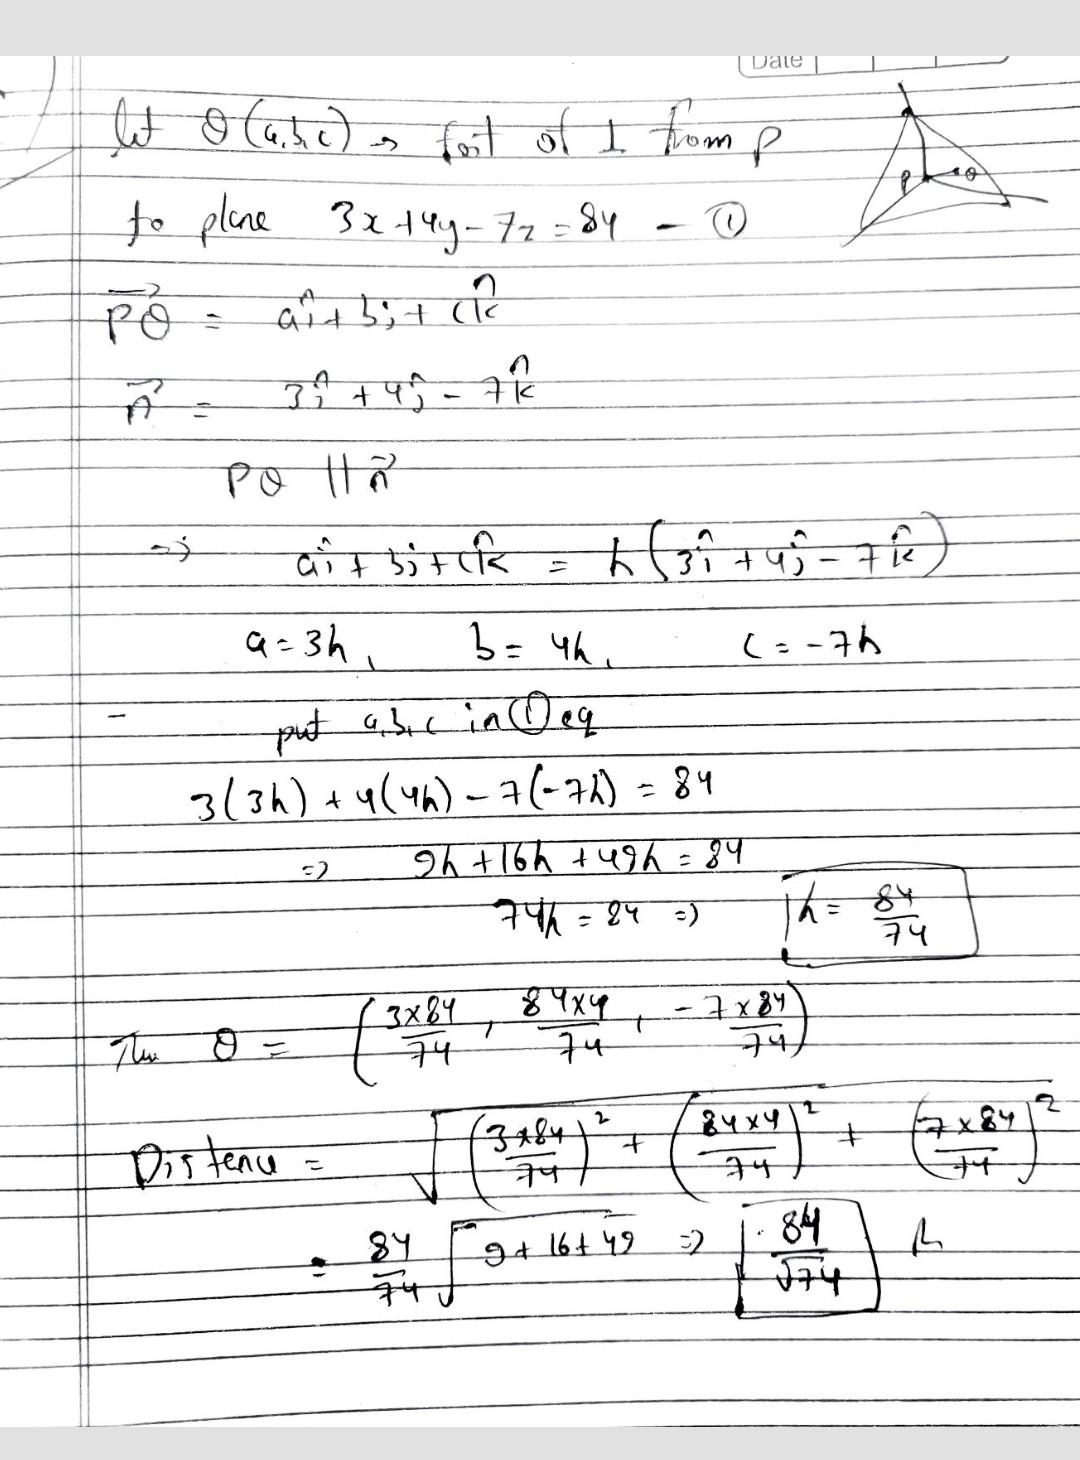 Date
let Q(a,b,c) → foot of ⊥ from P
P Q
to plane 3x+4y-7z=84 - ①
PQ = aî+bĵ+ck̂
n⃗ = 3î+4ĵ-7k̂
PQ || n⃗
=> aî+bĵ+ck̂ = h(3î+4ĵ-7k̂)
a=3h, b=4h, c=-7h
- put a,b,c in ① eq
3(3h)+4(4h)-7(-7h)=84
=> 9h+16h+49h=84
74h=84 => h=84/74
Thus Q = (3×84/74, 84×4/74, -7×84/74)
Distance = √((3×84/74)²+(84×4/74)²+(7×84/74)²)
= 84/74 √9+16+49 => 84/√74